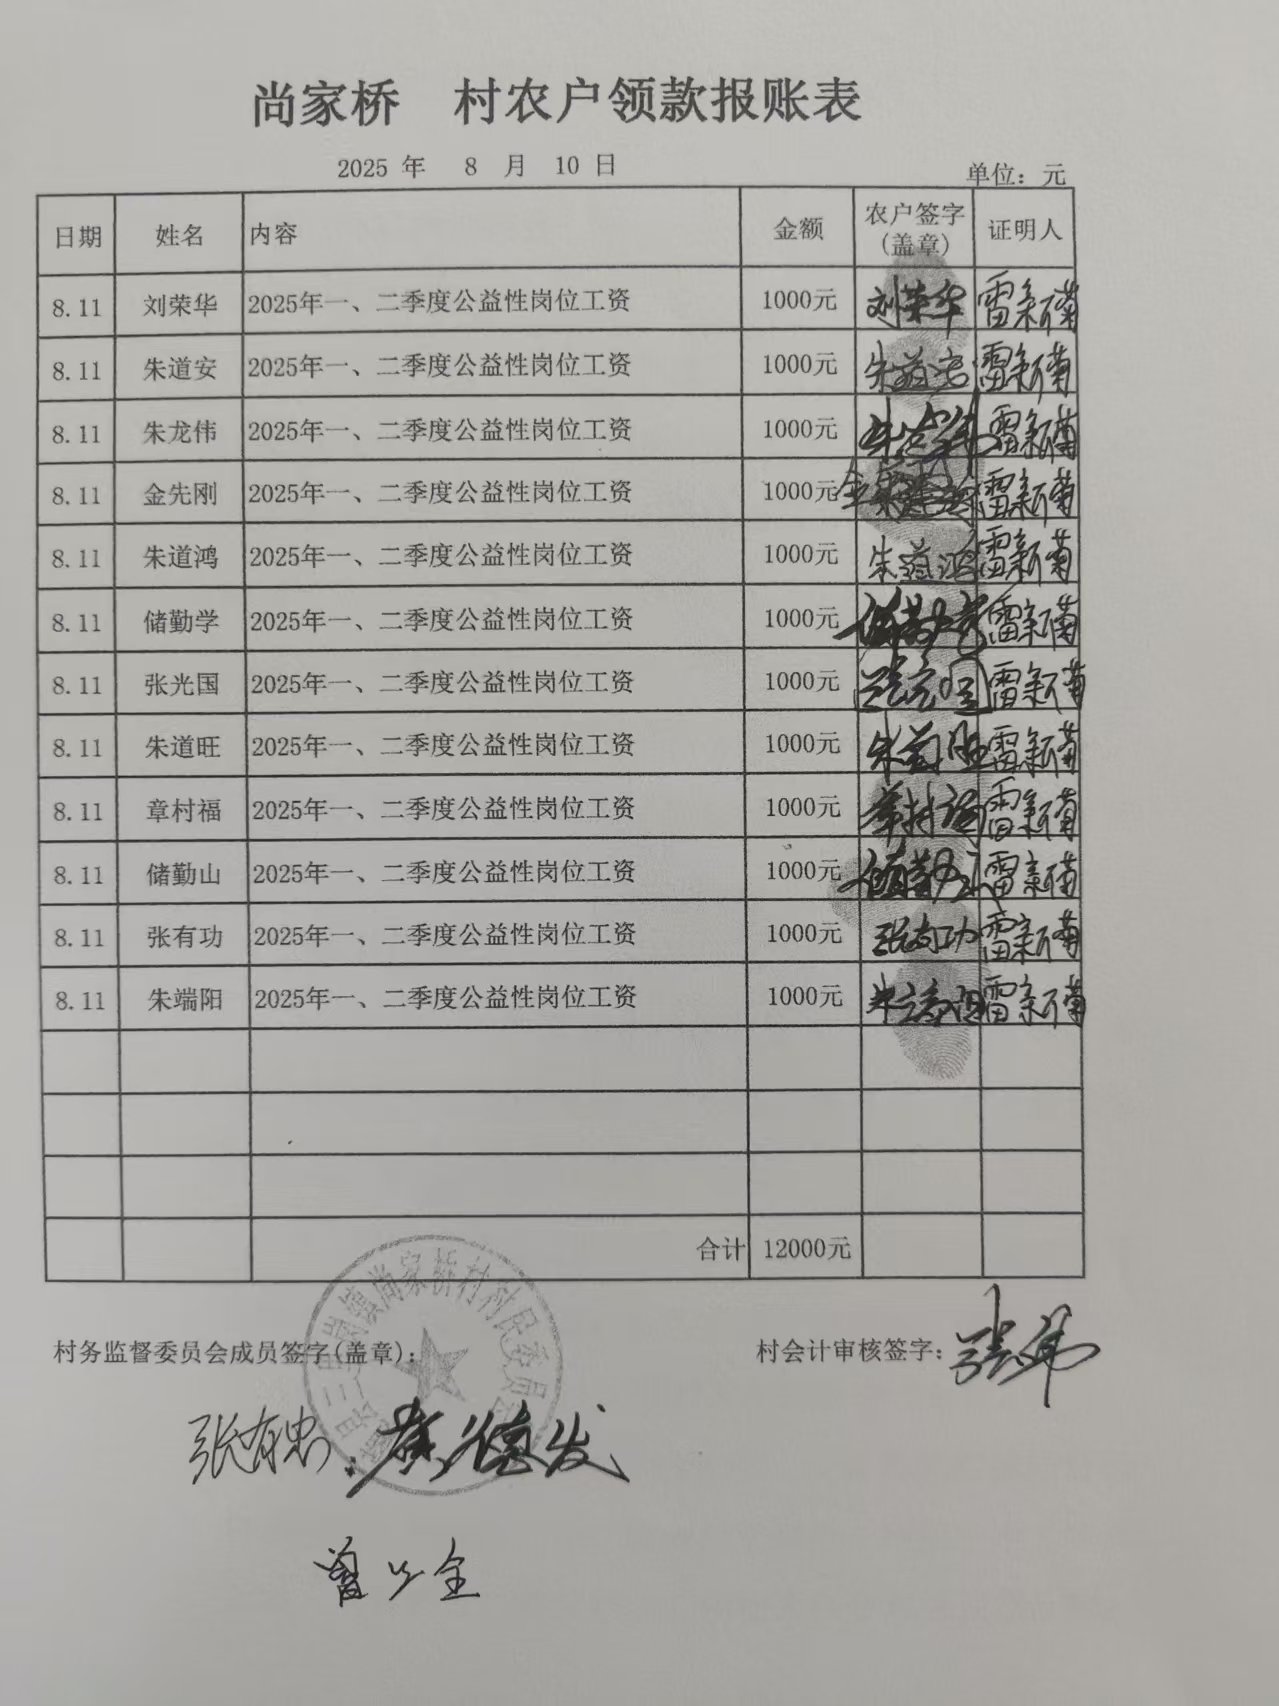 尚家桥 村农户领款报账表
2025 年 8 月 10 日 单位：元
日期 姓名 内容 金额 农户签字(盖章) 证明人
8.11 刘荣华 2025年一、二季度公益性岗位工资 1000元 刘荣华 雷新菊
8.11 朱道安 2025年一、二季度公益性岗位工资 1000元 朱道安 雷新菊
8.11 朱龙伟 2025年一、二季度公益性岗位工资 1000元 朱龙伟 雷新菊
8.11 金先刚 2025年一、二季度公益性岗位工资 1000元 雷新菊
8.11 朱道鸿 2025年一、二季度公益性岗位工资 1000元 朱道鸿 雷新菊
8.11 储勤学 2025年一、二季度公益性岗位工资 1000元 储勤学 雷新菊
8.11 张光国 2025年一、二季度公益性岗位工资 1000元 张光国 雷新菊
8.11 朱道旺 2025年一、二季度公益性岗位工资 1000元 朱道旺 雷新菊
8.11 章村福 2025年一、二季度公益性岗位工资 1000元 章村福 雷新菊
8.11 储勤山 2025年一、二季度公益性岗位工资 1000元 储勤山 雷新菊
8.11 张有功 2025年一、二季度公益性岗位工资 1000元 张有功 雷新菊
8.11 朱端阳 2025年一、二季度公益性岗位工资 1000元 朱端阳 雷新菊
合计 12000元
镇尚家桥村村民委员会
村务监督委员会成员签字(盖章)： 村会计审核签字：张伟
张有忠 黄德发
曾以全